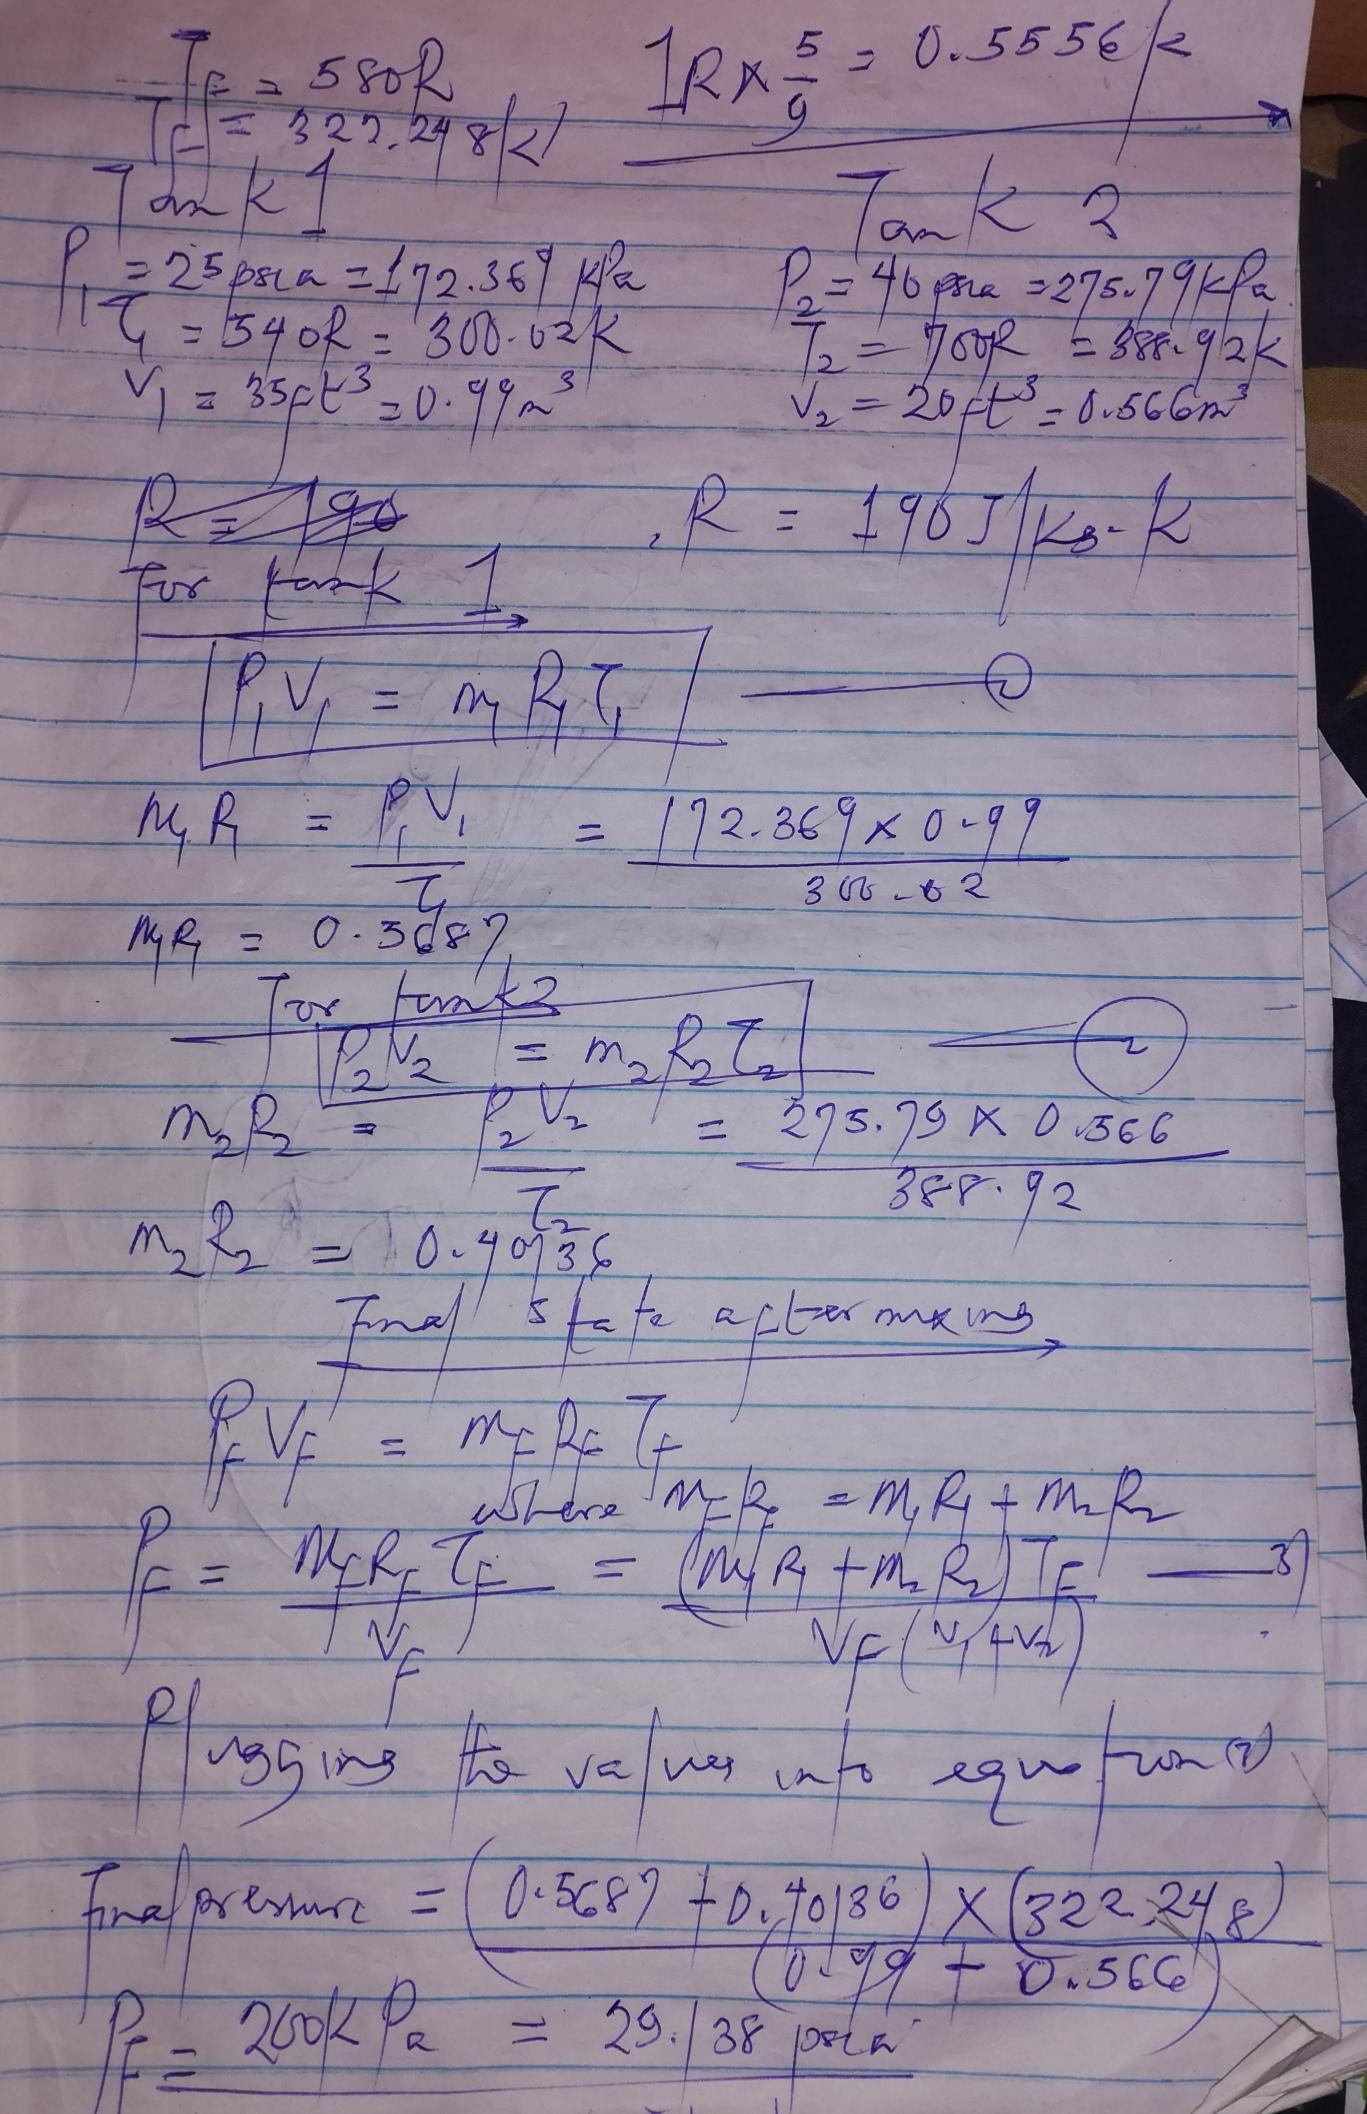 T_F = 580R 1R × 5/9 = 0.5556K
T_F = 322.248K
Tank 1 Tank 2
P₁ = 25psia = 172.369 kPa P₂ = 40 psia = 275.79kPa
T₁ = 540R = 300.02K T₂ = 700R = 388.92K
V₁ = 35ft³ = 0.99m³ V₂ = 20ft³ = 0.566m³
R = 190 , R = 190J/Kg-K
For tank 1
P₁V₁ = m₁R₁T₁
m₁R₁ = P₁V₁/T₁ = 172.369 × 0.99/300.02
m₁R₁ = 0.5687
For tank 2
P₂V₂ = m₂R₂T₂ 2
m₂R₂ = P₂V₂/T₂ = 275.79 × 0.566/388.92
m₂R₂ = 0.40136
Final state after mixing
P_F V_F = m_F R_F T_F
where m_F R_F = m₁R₁ + m₂R₂
P_F = m_F R_F T_F/V_F = (m₁R₁ + m₂R₂)T_F/V_F(V₁+V₂) 3)
Plugging the values into equation
Final pressure = (0.5687 + 0.40136) × (322.248)/(0.99 + 0.566)
P_F = 200KPa = 29.138 psia